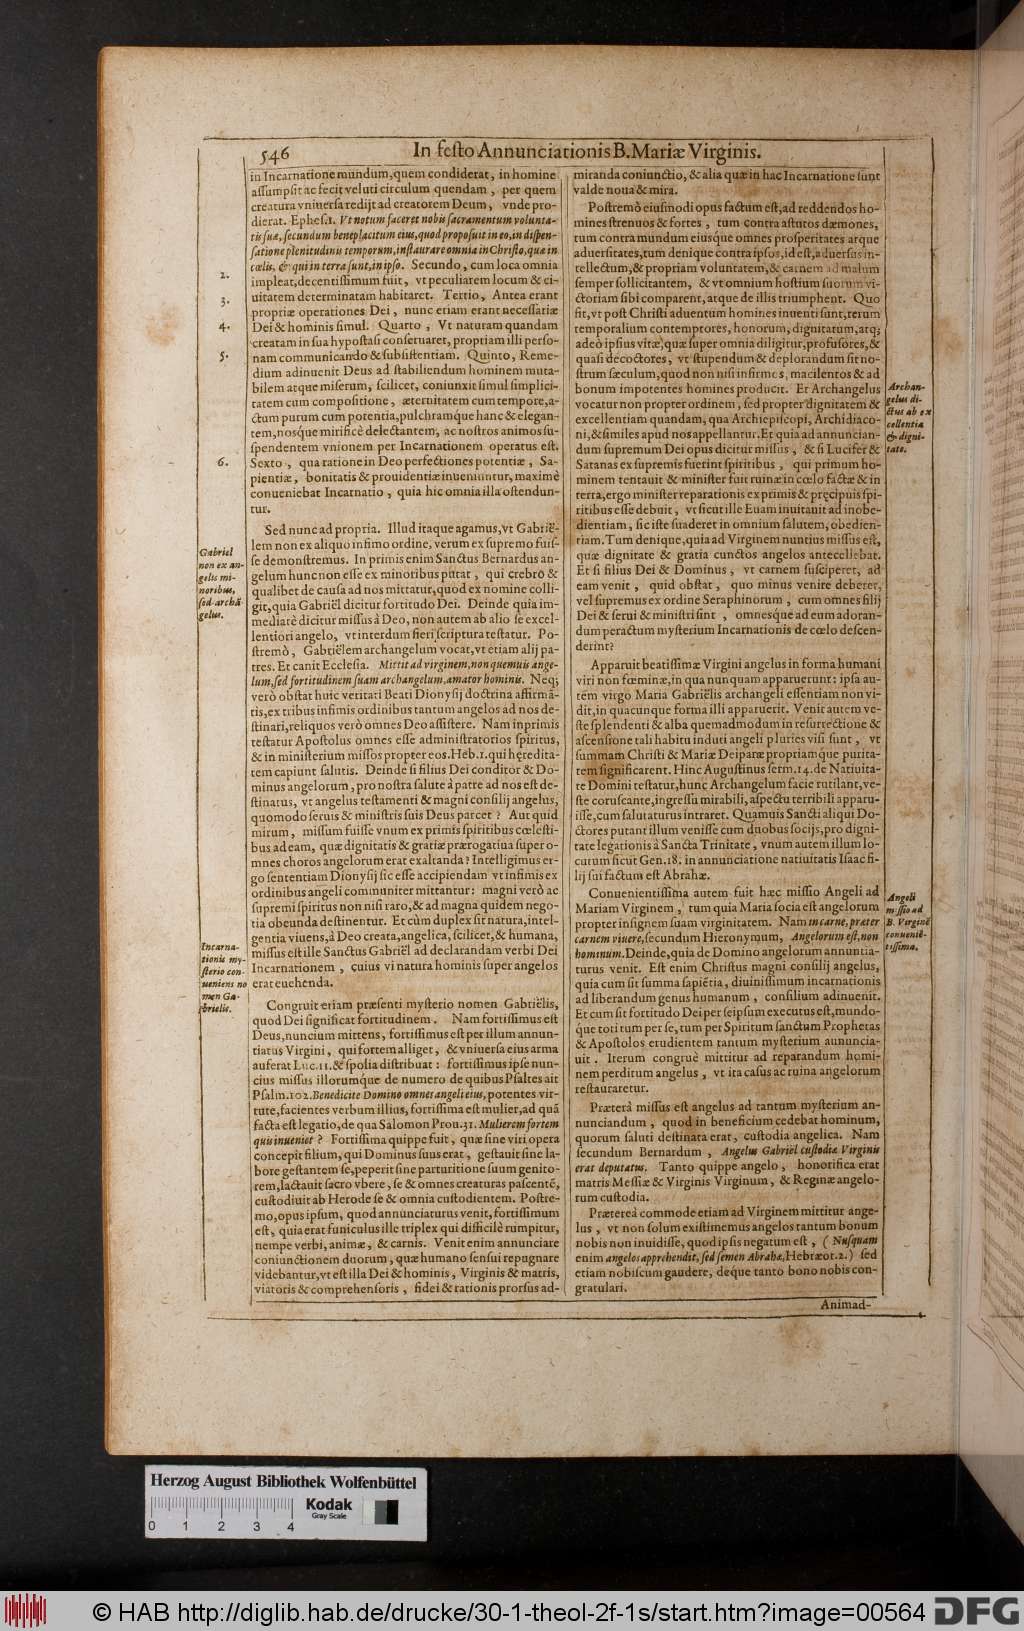 546 In festo Annunciationis B. Mariæ Virginis.
in Incarnatione mundum, quem condiderat, in homine
assumpsit ac fecit veluti circulum quendam, per quem
creatura vniuersa redijt ad creatorem Deum, vnde pro-
dierat. Ephes. 1. Vt notum faceret nobis sacramentum volunta-
tis suæ, secundum beneplacitum eius, quod proposuit in eo, in dispen-
satione plenitudinis temporum, instaurare omnia in Christo, quæ in
cœlis, & qui in terra sunt, in ipso. Secundo, cum loca omnia
2.
impleat, decentissimum fuit, vt peculiarem locum & ci-
uitatem determinatam habitaret. Tertio, Antea erant
3.
propriæ operationes Dei, nunc etiam erant necessariæ
Dei & hominis simul. Quarto, Vt naturam quandam
4.
creatam in sua hypostasi conseruaret, propriam illi perso-
nam communicando & subsistentiam. Quinto, Reme-
5.
dium adinuenit Deus ad stabiliendum hominem muta-
bilem atque miserum, scilicet, coniunxit simul simplici-
tatem cum compositione, æternitatem cum tempore, a-
ctum purum cum potentia, pulchramq́ue hanc & elegan-
tem, nosq́ue mirificè delectantem, ac nostros animos su-
spendentem vnionem per Incarnationem operatus est.
Sexto, qua ratione in Deo perfectiones potentiæ, Sa-
6.
pientiæ, bonitatis & prouidentiæ inueniuntur, maximè
conueniebat Incarnatio, quia hic omnia illa ostendun-
tur.
Sed nunc ad propria. Illud itaque agamus, vt Gabrië-
lem non ex aliquo infimo ordine, verum ex supremo fuis-
se demonstremus. In primis enim Sanctus Bernardus an-
gelum hunc non esse ex minoribus putat, qui crebrò &
qualibet de causa ad nos mittatur, quod ex nomine colli-
git, quia Gabriël dicitur fortitudo Dei. Deinde quia im-
mediatè dicitur missus à Deo, non autem ab alio se excel-
lentiori angelo, vt interdum fieri scriptura testatur. Po-
stremò, Gabriëlem archangelum vocat, vt etiam alij pa-
tres. Et canit Ecclesia. Mittit ad virginem, non quemuis ange-
lum, sed fortitudinem suam archangelum, amator hominis. Neq;
verò obstat huic veritati Beati Dionysij doctrina affirmã-
tis, ex tribus infimis ordinibus tantum angelos ad nos de-
stinari, reliquos verò omnes Deo assistere. Nam inprimis
testatur Apostolus omnes esse administratorios spiritus,
& in ministerium missos propter eos. Heb. 1. qui hęredita-
tem capiunt salutis. Deinde si filius Dei conditor & Do-
minus angelorum, pro nostra salute à patre ad nos est de-
stinatus, vt angelus testamenti & magni consilij angelus,
quomodo seruis & ministris suis Deus parcet? Aut quid
mirum, missum fuisse vnum ex primis spiritibus cœlesti-
bus ad eam, quæ dignitatis & gratiæ prærogatiua super o-
mnes choros angelorum erat exaltanda? Intelligimus er-
go sententiam Dionysij sic esse accipiendam vt infimis ex
ordinibus angeli communiter mittantur: magni verò ac
supremi spiritus non nisi raro, & ad magna quidem nego-
tia obeunda destinentur. Et cùm duplex sit natura, intel-
gentia viuens, à Deo creata, angelica, scilicet, & humana,
missus est ille Sanctus Gabriël ad declarandam verbi Dei
Incarnationem, cuius vi natura hominis super angelos
erat euehenda.
Congruit etiam præsenti mysterio nomen Gabriëlis,
quod Dei significat fortitudinem. Nam fortissimus est
Deus, nuncium mittens, fortissimus est per illum annun-
tiatus Virgini, qui fortem alliget, & vniuersa eius arma
auferat Luc. 11. & spolia distribuat: fortissimus ipse nun-
cius missus illorumq́ue de numero de quibus Psaltes ait
Psalm. 102. Benedicite Domino omnes angeli eius, potentes vir-
tute, facientes verbum illius, fortissima est mulier, ad quã
facta est legatio, de qua Salomon Prou. 31. Mulierem fortem
quis inueniet? Fortissima quippe fuit, quæ sine viri opera
concepit filium, qui Dominus suus erat, gestauit sine la-
bore gestantem se, peperit sine parturitione suum genito-
rem, lactauit sacro vbere, se & omnes creaturas pascentẽ,
custodiuit ab Herode se & omnia custodientem. Postre-
mo, opus ipsum, quod annunciaturus venit, fortissimum
est, quia erat funiculus ille triplex qui difficilè rumpitur,
nempe verbi, animæ, & carnis. Venit enim annunciare
coniunctionem duorum, quæ humano sensui repugnare
videbantur, vt est illa Dei & hominis, Virginis & matris,
viatoris & comprehensoris, fidei & rationis prorsus ad-
Gabriel
non ex an-
gelis mi-
noribus,
sed archã
gelus.
Incarna-
tionis my-
sterio con-
ueniens no
men Ga-
brielis.
miranda coniunctio, & alia quæ in hac Incarnatione sunt
valde noua & mira.
Postremò eiusmodi opus factum est, ad reddendos ho-
mines strenuos & fortes, tum contra astutos dæmones,
tum contra mundum eiusq́ue omnes prosperitates atque
aduersitates, tum denique contra ipsos, id est, aduersus in-
tellectum, & propriam voluntatem, & carnem ad malum
semper sollicitantem, & vt omnium hostium suorum vi-
ctoriam sibi comparent, atque de illis triumphent. Quo
fit, vt post Christi aduentum homines inuenti sunt, rerum
temporalium contemptores, honorum, dignitatum, atq;
adeò ipsius vitæ, quæ super omnia diligitur, profusores, &
quasi decoctores, vt stupendum & deplorandum sit no-
strum sæculum, quod non nisi infirmos, macilentos & ad
bonum impotentes homines producit. Et Archangelus
vocatur non propter ordinem, sed propter dignitatem &
excellentiam quandam, qua Archiepiscopi, Archidiaco-
ni, & similes apud nos appellantur. Et quia ad annuncian-
dum supremum Dei opus dicitur missus, & si Lucifer &
Satanas ex supremis fuerint spiritibus, qui primum ho-
minem tentauit & minister fuit ruinæ in cœlo factæ & in
terra, ergo minister reparationis ex primis & pręcipuis spi-
ritibus esse debuit, vt sicut ille Euam inuitauit ad inobe-
dientiam, sic iste suaderet in omnium salutem, obedien-
tiam. Tum denique, quia ad Virginem nuntius missus est,
quæ dignitate & gratia cunctos angelos antecellebat.
Et si filius Dei & Dominus, vt carnem susciperet, ad
eam venit, quid obstat, quo minus venire deberet,
vel supremus ex ordine Seraphinorum, cum omnes filij
Dei & serui & ministri sint, omnesque ad eum adoran-
dum peractum mysterium Incarnationis de cœlo descen-
derint?
Apparuit beatissimæ Virgini angelus in forma humani
viri non fœminæ, in qua nunquam apparuerunt: ipsa au-
tem virgo Maria Gabriëlis archangeli essentiam non vi-
dit, in quacunque forma illi apparuerit. Venit autem ve-
ste splendenti & alba quemadmodum in resurrectione &
ascensione tali habitu induti angeli pluries visi sunt, vt
summam Christi & Mariæ Deiparæ propriamq́ue purita-
tem significarent. Hinc Augustinus serm. 14. de Natiuita-
te Domini testatur, hunc Archangelum facie rutilant, ve-
ste coruscante, ingressu mirabili, aspectu terribili apparu-
isse, cum salutaturus intraret. Quamuis Sancti aliqui Do-
ctores putant illum venisse cum duobus socijs, pro digni-
tate legationis à Sancta Trinitate, vnum autem illum lo-
cutum sicut Gen. 18. in annunciatione natiuitatis Isaac fi-
lij sui factum est Abrahæ.
Conuenientissima autem fuit hæc missio Angeli ad
Mariam Virginem, tum quia Maria socia est angelorum
propter insignem suam virginitatem. Nam in carne, præter
carnem viuere, secundum Hieronymum, Angelorum est, non
hominum. Deinde, quia de Domino angelorum annuntia-
turus venit. Est enim Christus magni consilij angelus,
quia cum sit summa sapiẽtia, diuinissimum incarnationis
ad liberandum genus humanum, consilium adinuenit.
Et cum sit fortitudo Dei per seipsum executus est, mundo-
q́ue toti tum per se, tum per Spiritum sanctum Prophetas
& Apostolos erudientem tantum mysterium annuncia-
uit. Iterum congruè mittitur ad reparandum homi-
nem perditum angelus, vt ita casus ac ruina angelorum
restauraretur.
Præterà missus est angelus ad tantum mysterium an-
nunciandum, quod in beneficium cedebat hominum,
quorum saluti destinata erat, custodia angelica. Nam
secundum Bernardum, Angelus Gabriël custodiæ Virginis
erat deputatus. Tanto quippe angelo, honorifica erat
matris Messiæ & Virginis Virginum, & Reginæ angelo-
rum custodia.
Prætereà commode etiam ad Virginem mittitur ange-
lus, vt non solum existimemus angelos tantum bonum
nobis non inuidisse, quod ipsis negatum est, (Nusquam
enim angelos apprehendit, sed semen Abrahæ, Hebræor. 2.) sed
etiam nobiscum gaudere, deque tanto bono nobis con-
gratulari.
Archan-
gelus di-
ctus ab ex
cellentia
& digni-
tate.
Angeli
missio ad
B. Virginẽ
conueniẽ-
tissima.
Animad-
Herzog August Bibliothek Wolfenbüttel
Kodak
Gray Scale
0 1 2 3 4
© HAB http://diglib.hab.de/drucke/30-1-theol-2f-1s/start.htm?image=00564
DFG